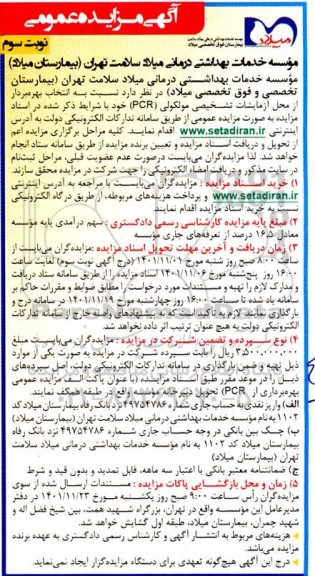 آگهی مزایده عمومی
نوبت سوم
میلاد
بیمارستان فوق تخصصی میلاد
مؤسسه خدمات بهداشتی درمانی میلاد سلامت تهران (بیمارستان میلاد)
مؤسسه خدمات بهداشتی درمانی میلاد سلامت تهران (بیمارستان
تخصصی و فوق تخصصی میلاد) در نظر دارد نسبت به انتخاب بهره‌بردار
از محل آزمایشات تشخیصی مولکولی (PCR) خود با شرایط ذکر شده در اسناد
مزایده به صورت مزایده عمومی از طریق سامانه تدارکات الکترونیکی دولت به آدرس
اینترنتی www.setadiran.ir اقدام نمایند. کلیه مراحل برگزاری مزایده اعم
از تحویل و دریافت اسناد مزایده و تعیین برنده مزایده از طریق سامانه ستاد انجام
خواهد شد. لذا مزایده گران می‌بایست درصورت عدم عضویت قبلی، مراحل ثبت‌نام
در سایت مذکور و دریافت امضاء الکترونیکی را جهت شرکت در مزایده محقق سازند.
۱) خرید اسناد مزایده: مزایده گران می‌بایست با مراجعه به آدرس اینترنتی
www.setadiran.ir و پرداخت هزینه‌های مربوطه، از طریق درگاه سایت
نسبت به خرید اسناد مزایده اقدام نمایند.
۲) مبلغ پایه مزایده کارشناسی رسمی دادگستری: سهم درآمدی پایه مؤسسه
معادل ۱۶.۵ درصد از تعرفه‌های جاری مؤسسه
۳) زمان دریافت و آخرین مهلت تحویل اسناد مزایده: مزایده‌گران می‌بایست از
ساعت ۸:۰۰ صبح روز شنبه مورخ ۱۴۰۱/۱۱/۰۱ (درج آگهی نوبت سوم) لغایت ساعت
۱۶:۰۰ روز پنج‌شنبه مورخ ۱۴۰۱/۱۱/۰۶ اسناد مزایده را از طریق سامانه ستاد دریافت
و مدارک لازم را تهیه و مستندات مورد درخواست را مطابق ضوابط و مقررات حاکم بر
سامانه یاد شده تا ساعت ۱۶:۰۰ روز چهارشنبه مورخ ۱۴۰۱/۱۱/۱۹ در سامانه درج و
بارگذاری نمایند. لازم به تأکید است که به پیشنهادهای واصله خارج از سامانه تدارکات
الکترونیکی دولت به هیچ عنوان ترتیب اثر داده نخواهد شد.
۴) نوع سپرده و تضمین شرکت در مزایده: مزایده گران می‌بایست مبلغ
۳,۵۰۰,۰۰۰,۰۰۰ ریال را بابت سپرده شرکت در مزایده به صورت یکی از موارد
ذیل تهیه و ضمن بارگذاری در سامانه تدارکات الکترونیکی دولت، اصل سپرده‌های
ذیل را در موعد مقرر طبق اسناد مزایده (با عنوان پاکت الف مزایده عمومی
بهره‌برداری از PCR) تحویل دبیرخانه مؤسسه واقع در طبقه همکف نمایند
الف) واریز نقدی به حساب جاری شماره ۴۹۷۵۴۷۸۶ نزد بانک رفاه بیمارستان میلاد کد
۱۱۰۲ به نام مؤسسه خدمات بهداشتی درمانی میلاد سلامت تهران (بیمارستان میلاد)
ب) چک بین بانکی در وجه حساب جاری شماره ۴۹۷۵۴۷۸۶ نزد بانک رفاه
بیمارستان میلاد کد ۱۱۰۲ به نام مؤسسه خدمات بهداشتی درمانی میلاد سلامت
تهران (بیمارستان میلاد)
ج) ضمانتنامه معتبر بانکی با اعتبار سه ماهه، قابل تمدید و بدون قید و شرط
۵) زمان و محل بازگشایی پاکات مزایده: مستندات ارسال شده از سوی
مزایده‌گران رأس ساعت ۹:۰۰ صبح روز یکشنبه مورخ ۱۴۰۱/۱۱/۲۳ در دفتر
مدیرعامل این مؤسسه واقع در تهران، بزرگراه شهید همت، بین شیخ فضل اله و
شهید چمران، بیمارستان میلاد، طبقه اول گشایش خواهد شد.
هزینه‌های مربوط به انتشار آگهی و کارشناس رسمی دادگستری به عهده برنده
مزایده می‌باشد.
درج این آگهی هیچ‌گونه تعهدی برای دستگاه مزایده‌گزار ایجاد نمی‌نماید.